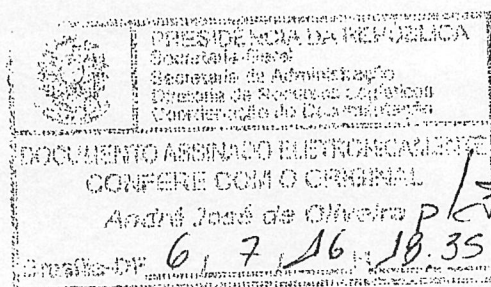 PRESIDÊNCIA DA REPÚBLICA
Secretaria-Geral
Secretaria de Administração
Diretoria de Recursos Logísticos
Coordenação de Documentação
DOCUMENTO ASSINADO ELETRONICAMENTE
CONFERE COM O ORIGINAL
André José de Oliveira p/
Brasília-DF 6 / 7 / 16 H 18.35